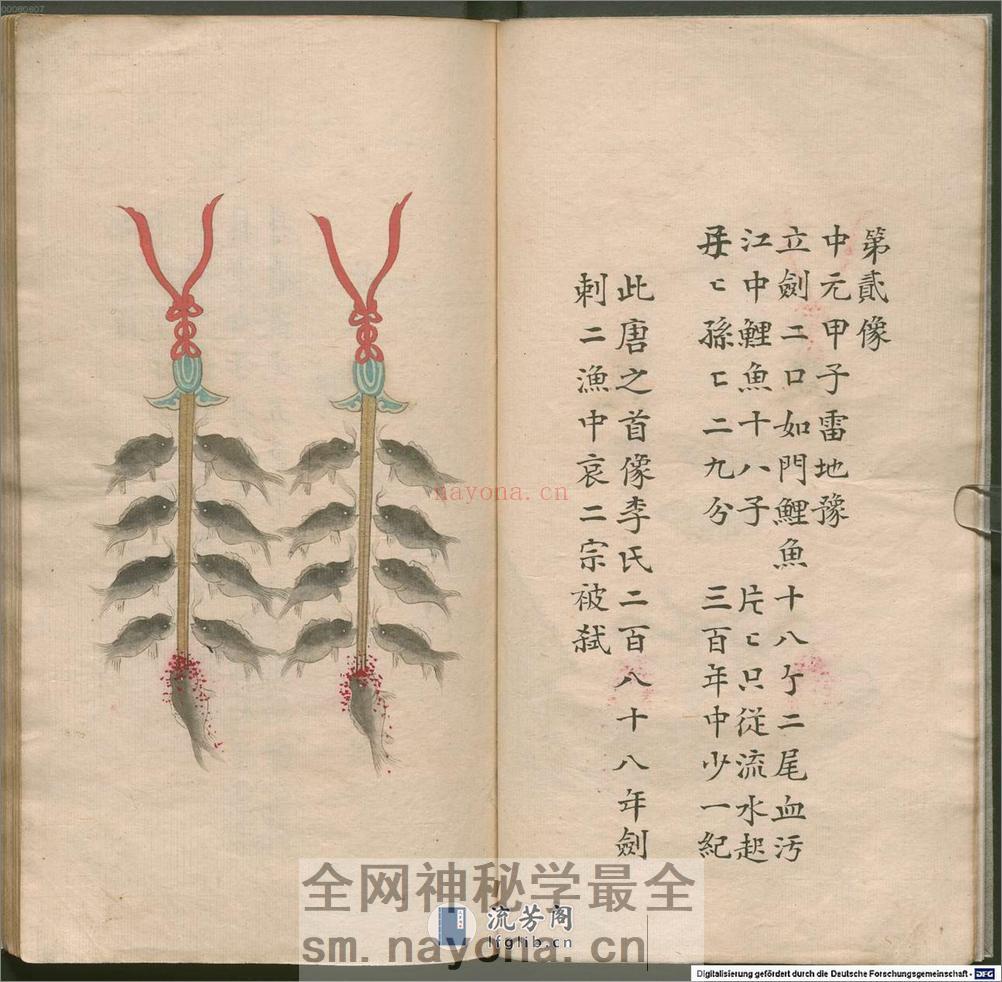 00060607
第貳像
中元甲子雷地豫
立劍二口如門鯉魚十八个二尾血污
江中鯉魚十八子 片〻只從流水起
子〻孫〻二九分 三百年中少一紀
此唐之首像李氏二百八十八年劍
刺二漁中哀二宗被弒
nayona.cn
全网神秘学最全
流芳阁
lfglib.cn
sm.nayona.cn
Digitalisierung gefördert durch die Deutsche Forschungsgemeinschaft - DFG